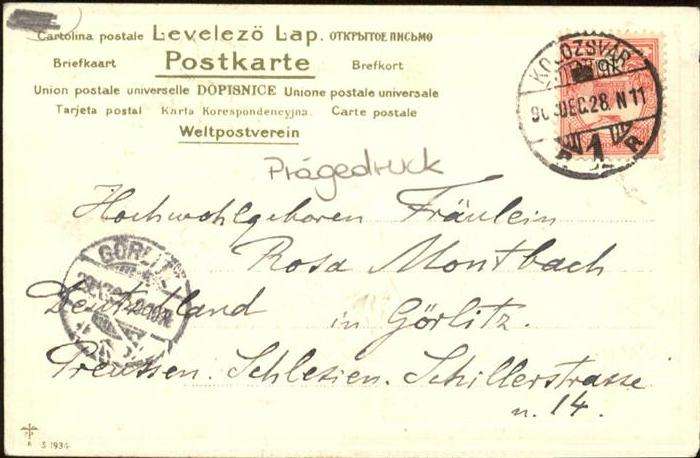 Cartolina postale Levelező Lap. ОТКРЫТОЕ ПИСЬМО
Briefkaart Postkarte Brefkort
Union postale universelle DOPISNICE Unione postale universale
Tarjeta postal Karta Korespondencyjna. Carte postale
Weltpostverein
KOLOZSVÁR
DEC. 28. N 11
Prägedruck
Hochwohlgeboren Fräulein
Rosa Montbach
Deutschland
in Görlitz.
Preussen. Schlesien. Schillerstrasse
n. 14.
GÖRLITZ
S 1934